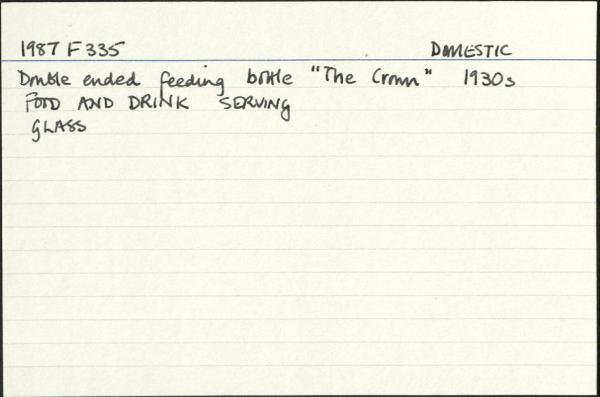 1987 F 335 DOMESTIC
Double ended feeding bottle "The Crown" 1930s
FOOD AND DRINK SERVING
GLASS